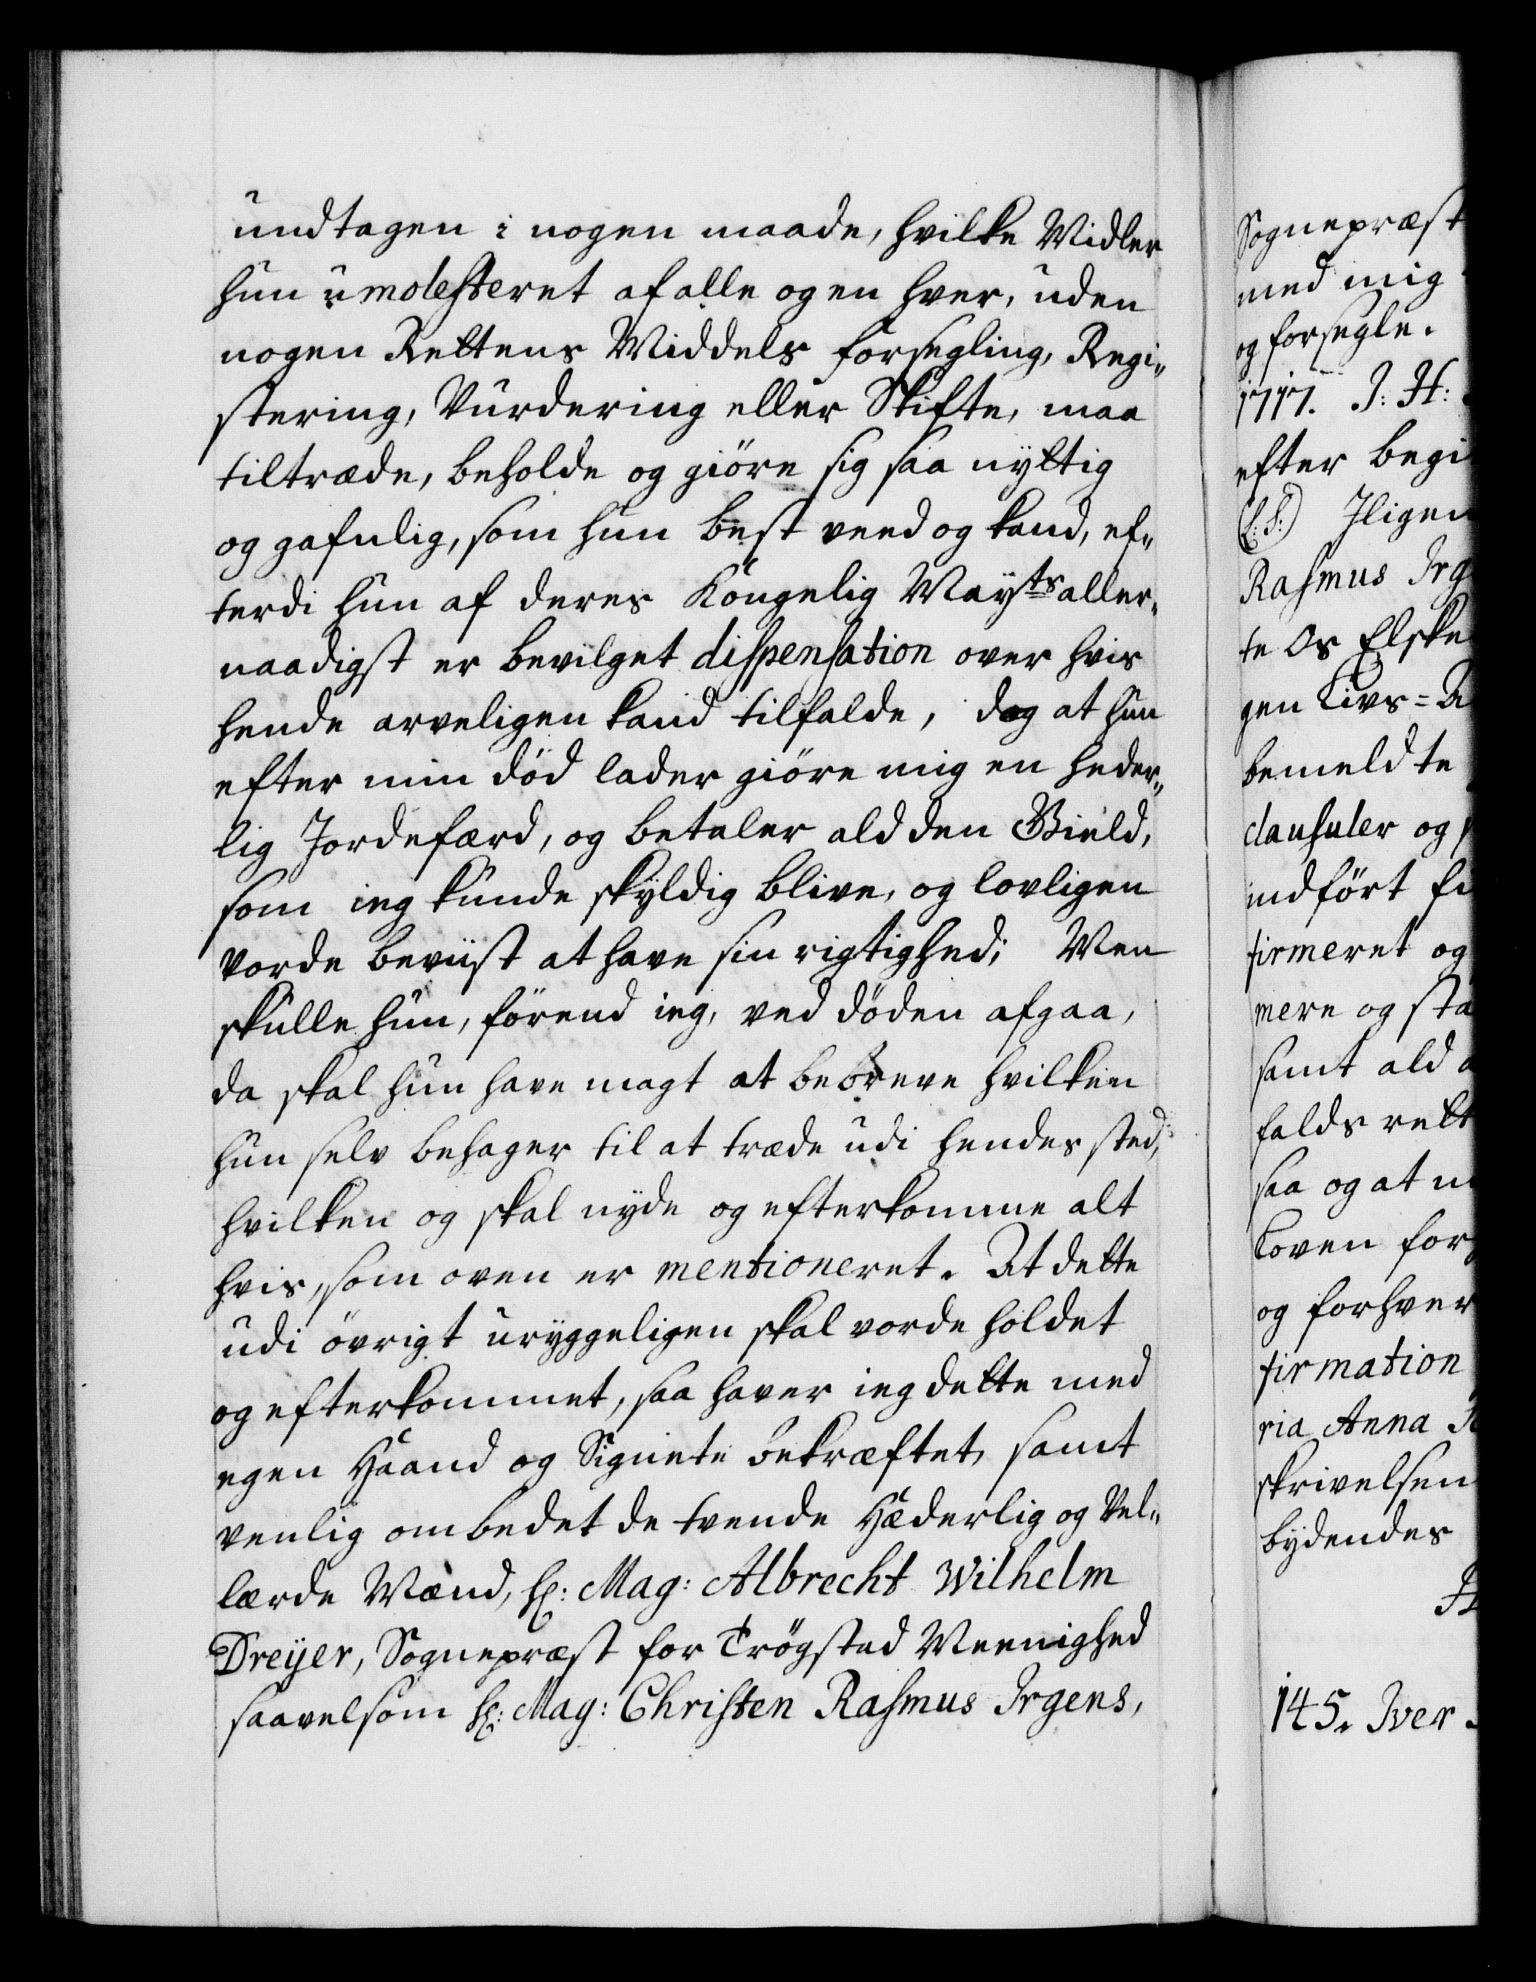 undtagen i nogen maade, hvilke Midler
hun umolesteret af alle og en hver, uden
nogen Rettens Middels forsegling, Regi„
stering, Vurdering eller Skifte, maa
tiltræde, beholde og giöre sig saa nyttig
og gafnlig, som hun best veed og kand, ef„
terdi hun af deres Kongelig Mayts aller„
naadigst er bevilget dispensation over hvis
hende arveligen kand tilfalde, dog at hun
efter min död lader giöre mig en heder„
lig Jordefærd, og betaler ald den Gield,
som ieg kunde skyldig blive, og lovligen
vorde beviist at have sin rigtighed; Men
skulle hun, förend ieg, ved döden afgaa,
da skal hun have magt at bebreve hvilken
hun selv behager til at træde udi hendes sted,
hvilken og skal nyde og efterkomme alt
hvis, som oven er mentioneret. At dette
udi övrigt uryggeligen skal vorde holdet
og efterkommet, saa haver ieg dette med
egen Haand og Signete bekræftet, samt
venlig ombedet de tvende Hæderlig og Vel„
lærde Mænd, Hr: Mag: Albrecht Wilhelm
Dreyer, Sognepræst for Trögstad Meenighed
saavelsom Hr: Mag: Christen Rasmus Irgens,
Sognepræst
med mig
og forsegle.
1717. J: H:
efter begi
(L:S:) Iligen
Rasmus Irg
te Os Elske
gen Livs=A
bemeldte
clausuler og
indfört fi
firmeret og
mere og sta
samt ald a
falds rett
saa og at
Loven for
og forhver
firmation
ria Anna
skrivelsen
bydendes
145. Iver